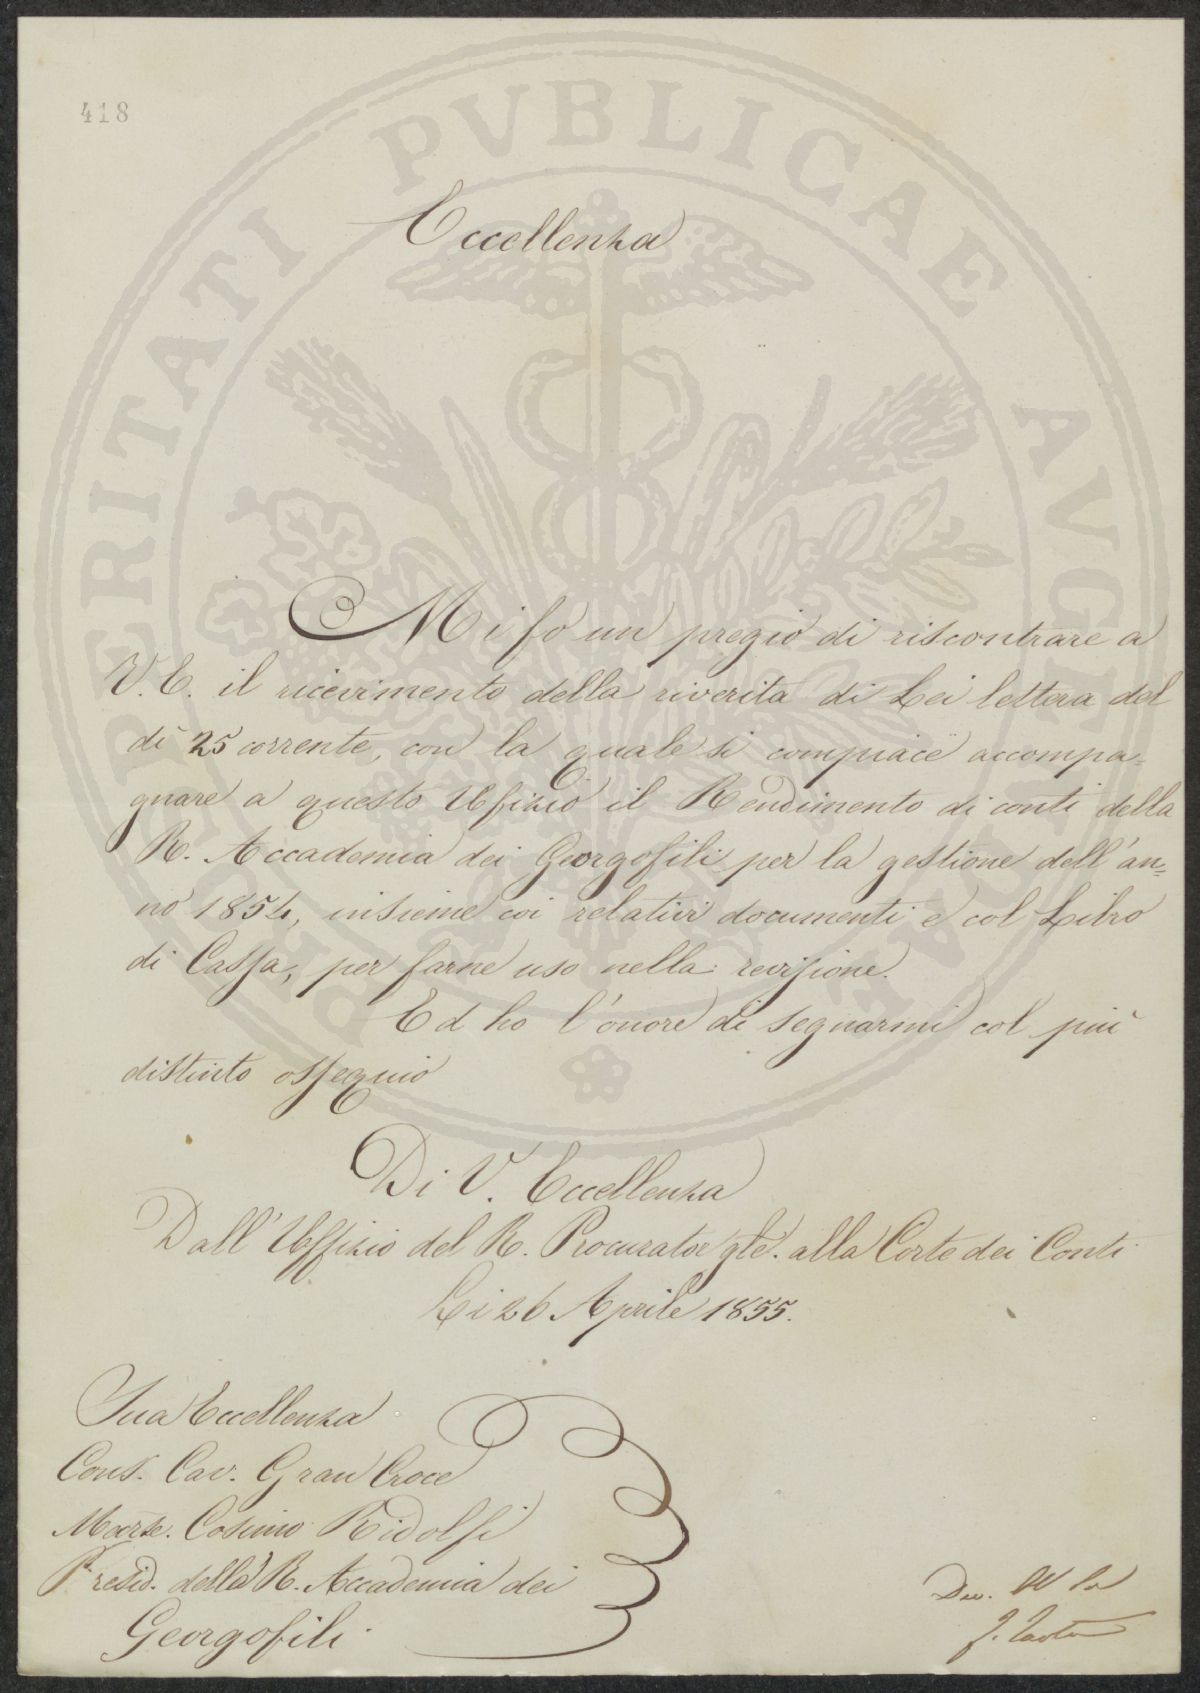 418
Eccellenza
Mi fo un pregio di riscontrare a
V. E. il ricevimento della riverita di Lei lettera del
dì 25 corrente, con la quale si compiace accompa=
gnare a questo Ufizio il Rendimento di conti della
R. Accademia dei Georgofili per la gestione dell'an=
no 1854, insieme coi relativi documenti e col Libro
di Cassa, per farne uso nella revisione.
Ed ho l'onore di segnarmi col più
distinto ossequio
Di V. Eccellenza
Dall'Uffizio del R. Procurator gle. alla Corte dei Conti
Li 26 Aprile 1855.
Sua Eccellenza
Cons. Cav. Gran Croce
Marse. Cosimo Ridolfi
Presid. della R. Accademia dei
Georgofili.
PROSPERITATI PVBLICAE AVGENDAE